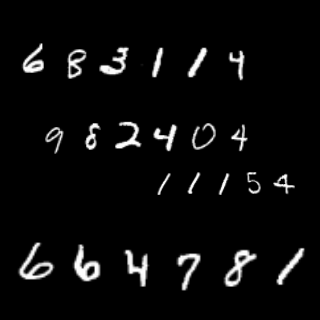 683114
982404
11154
664781